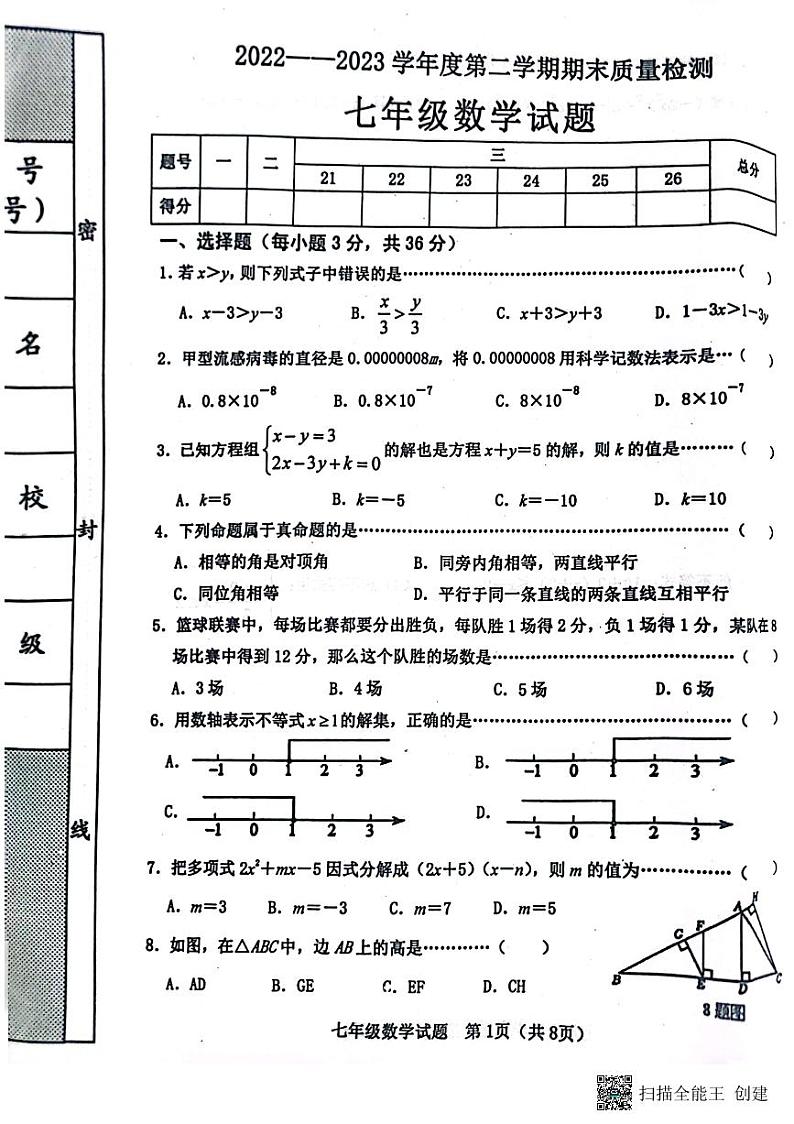 2022——2023 学年度第二学期期末质量检测
七年级数学试题
题号 一 二 三 总分
21 22 23 24 25 26
得分
号
号)
名
校
级
密
封
线
一、选择题（每小题 3 分，共 36 分）
1. 若 x>y, 则下列式子中错误的是…………………………………………………( )
A. x-3>y-3 B. x/3 > y/3 C. x+3>y+3 D. 1-3x>1-3y
2. 甲型流感病毒的直径是 0.00000008m, 将 0.00000008 用科学记数法表示是…( )
A. 0.8×10⁻⁸ B. 0.8×10⁻⁷ C. 8×10⁻⁸ D. 8×10⁻⁷
3. 已知方程组 {x-y=3 2x-3y+k=0 的解也是方程 x+y=5 的解，则 k 的值是………( )
A. k=5 B. k=-5 C. k=-10 D. k=10
4. 下列命题属于真命题的是…………………………………………………( )
A. 相等的角是对顶角 B. 同旁内角相等，两直线平行
C. 同位角相等 D. 平行于同一条直线的两条直线互相平行
5. 篮球联赛中，每场比赛都要分出胜负，每队胜 1 场得 2 分，负 1 场得 1 分，某队在 8
场比赛中得到 12 分，那么这个队胜的场数是………………………………( )
A. 3 场 B. 4 场 C. 5 场 D. 6 场
6. 用数轴表示不等式 x≥1 的解集，正确的是…………………………………( )
A. -1 0 1 2 3 B. -1 0 1 2 3
C. -1 0 1 2 3 D. -1 0 1 2 3
7. 把多项式 2x²+mx-5 因式分解成（2x+5）（x-n），则 m 的值为……………( )
A. m=3 B. m=-3 C. m=7 D. m=5
8. 如图，在△ABC 中，边 AB 上的高是…………( )
A. AD B. GE C. EF D. CH
A H G F B E D C
8 题图
七年级数学试题 第 1页（共 8页）
扫描全能王 创建